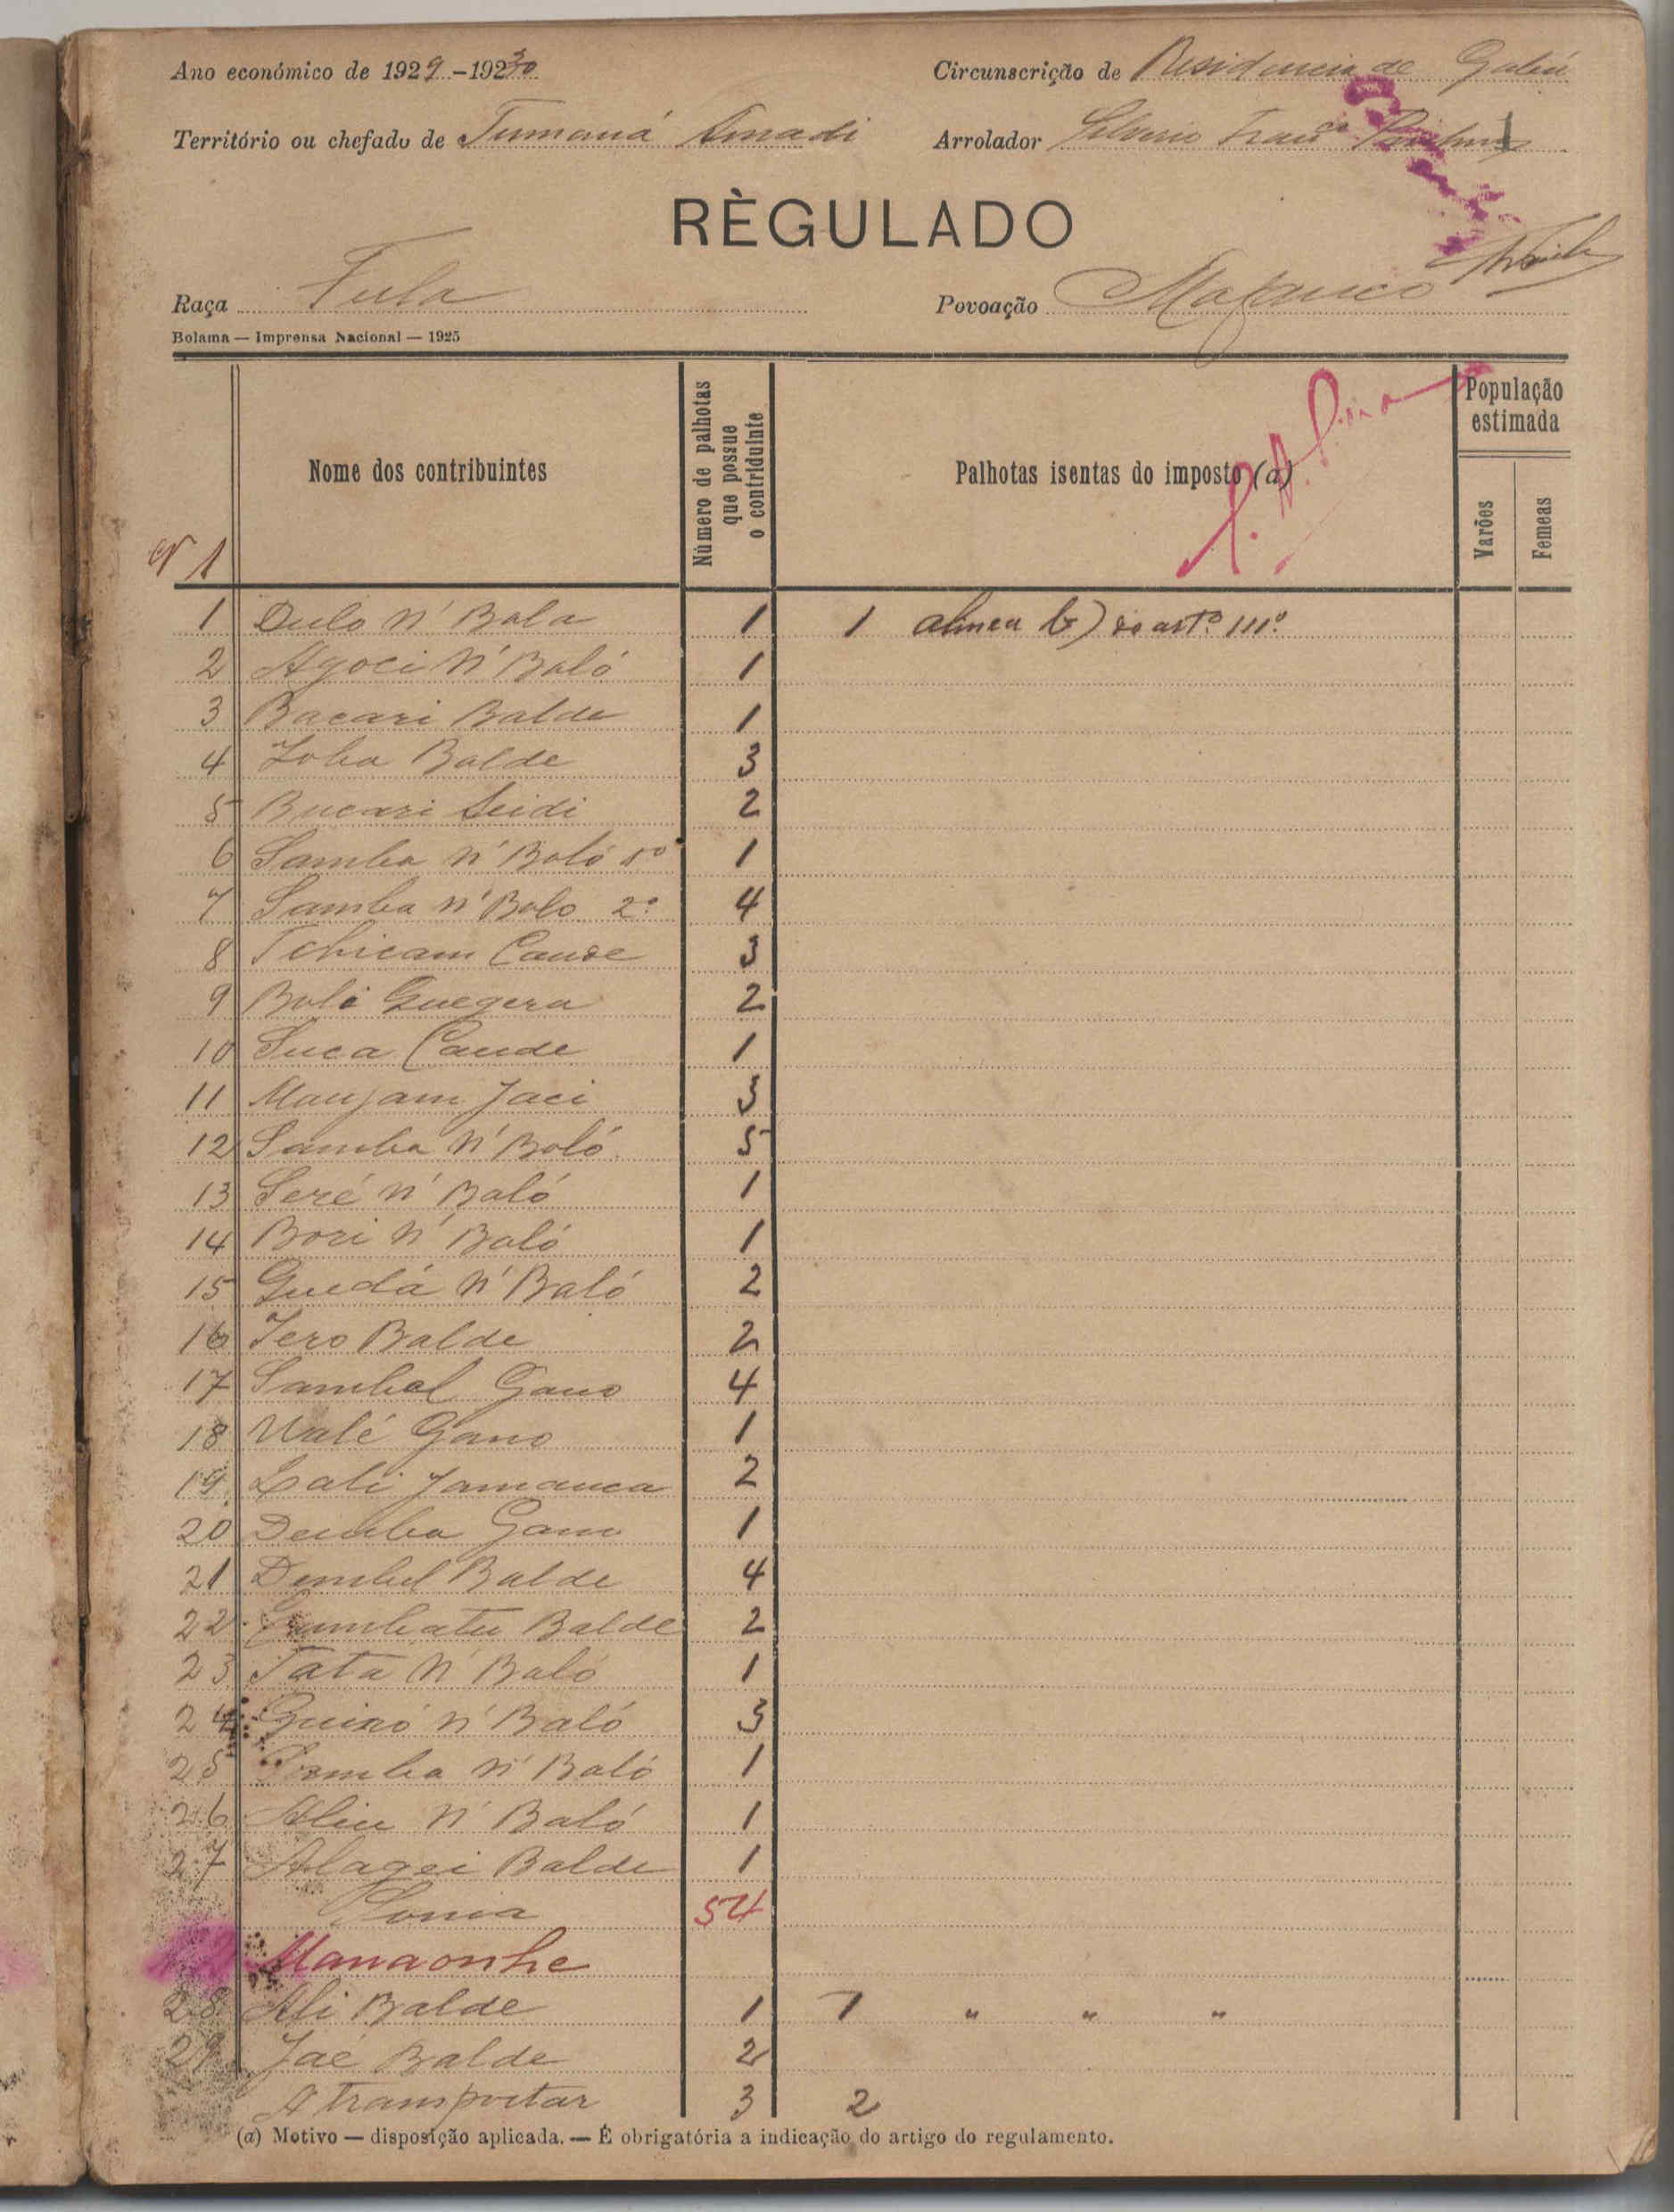 Ano económico de 1929-1930
Circunscrição de Residencia de Gabú
Território ou chefado de Tumaná Amadi
Arrolador Silverio
RÈGULADO
Raça Fula
Povoação Mafanco
Bolama — Imprensa Nacional — 1925
Nome dos contribuintes
Número de palhotas que possue o contriduinte
Palhotas isentas do imposto (a)
População estimada
Varões
Femeas
Nº 1
1 Dulo n' Bala 1 1 alinea b) do artº 111º
2 Agoci N' Baló 1
3 Bacari Balde 1
4 Joba Balde 3
5 Bucari Seidi 2
6 Samba n' Baló 1º 1
7 Samba n' Balo 2º 4
8 Tchicam Cande 3
9 Bali Guegera 2
10 Suca Cande 1
11 Maujam Jaci 3
12 Samba N' Boló 5
13 Seré n' Baló 1
14 Bori N' Baló 1
15 Guedá N' Baló 2
16 Iero Balde 2
17 Sambel Gano 4
18 Ualé Gano 1
19 Lali Jamanca 2
20 Demba Gano 1
21 Dembel Balde 4
22 Cumbatu Balde 2
23 Tata N' Baló 1
24 Guiró n' Baló 3
25 Samba n' Baló 1
26 Aliu N' Baló 1
27 Alagei Balde 1
Soma 54
Manaonhe
28 Ali Balde 1 1 " " "
29 Jaé Balde 2
A transportar 3 2
(a) Motivo — disposição aplicada. — É obrigatória a indicação do artigo do regulamento.